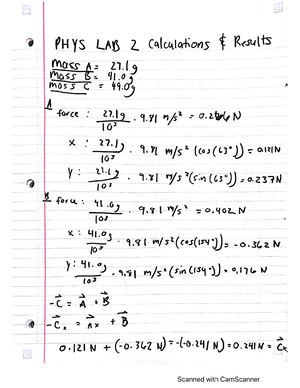 PHYS LAB 2 Calculations & Results
mass A = 27.1g
mass B = 41.0g
mass C = 49.0g
A
force : 27.1g / 10³ · 9.81 m/s² = 0.266 N
x : 27.1g / 10³ · 9.81 m/s² (cos(63°)) = 0.121N
Y : 27.1g / 10³ · 9.81 m/s² (sin(63°)) = 0.237N
B
force : 41.0g / 10³ · 9.81 m/s² = 0.402 N
x : 41.0g / 10³ · 9.81 m/s² (cos(154°)) = -0.362 N
y : 41.0g / 10³ · 9.81 m/s² (sin(154°)) = 0.176 N
-C = A + B
-Cx = Ax + B
0.121 N + (-0.362 N) = -(-0.241 N) = 0.241N = Cx
Scanned with CamScanner